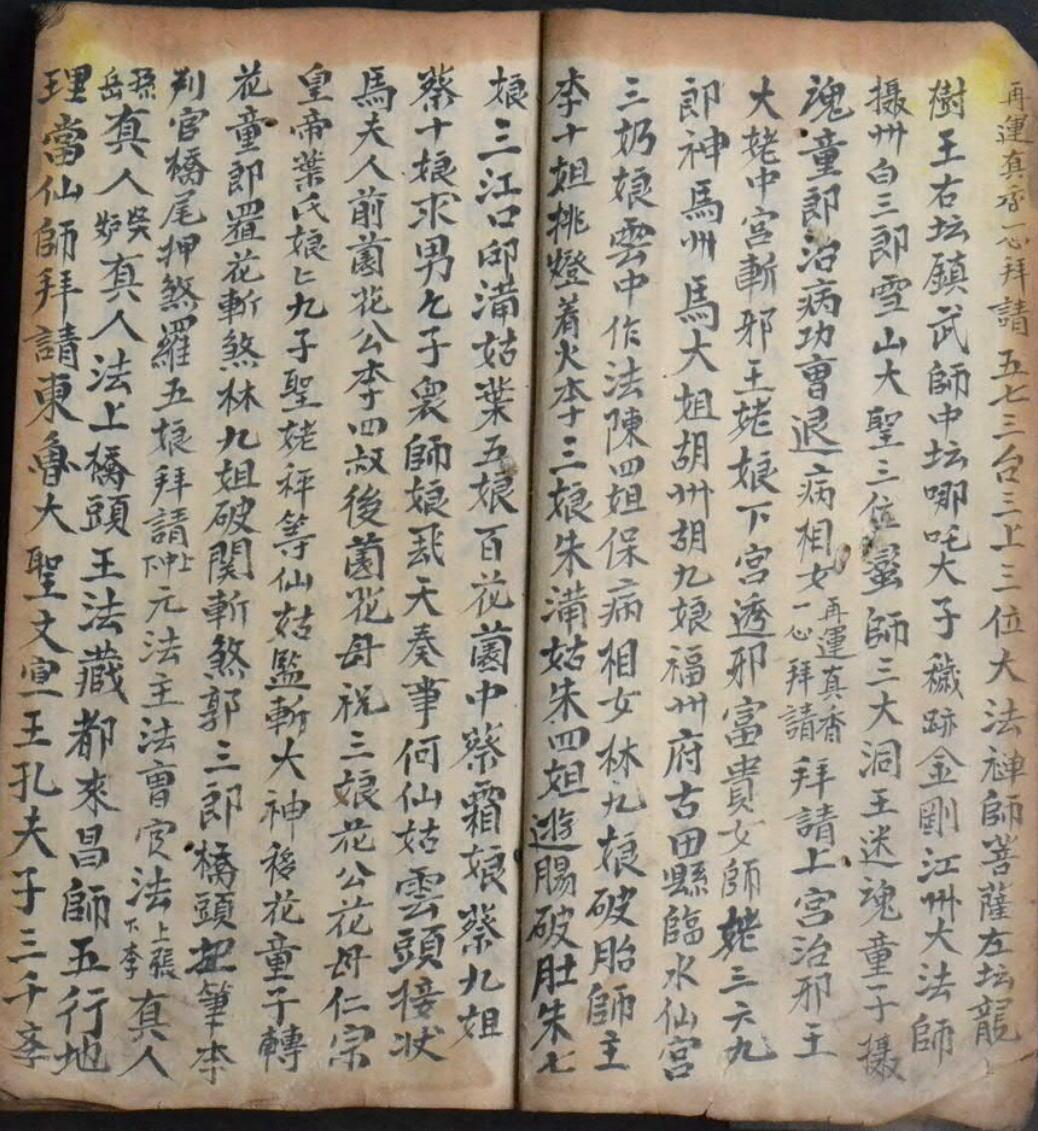 再運真香一心拜請五七三台三上三位大法禅師菩薩左坛龍
樹王右坛鎮武師中坛哪吒大子穢跡金剛江州大法師
摄州白三郎雪山大聖三位蛮師三大洞王迷魂童子摄
魂童郎治病功曹退病相女再運真香一心拜請拜請上宮治邪王
大姥中宮斬邪王姥娘下宮透邪富貴女師姥三六九
郎神馬州馬大姐胡州胡九娘福州府古田縣臨水仙宮
三奶娘雲中作法陳四姐保病相女林九娘破胎師主
李十姐挑燈着火李三娘朱滿姑朱四姐遊腸破肚朱七
娘三江口邱滿姑葉五娘百花園中蔡霜娘蔡九姐
蔡十娘求男乞子衆師娘飛天奏事何仙姑雲頭接状
馬夫人前園花公李四叔後園花母祝三娘花公花母仁宗
皇帝葉氏娘匕九子聖姥秤等仙姑監斬大神移花童子轉
花童郎置花斬煞林九姐破関斬煞郭三郎橋頭把筆李
判官橋尾押煞羅五娘拜請上中下元法主法曹官法上張下李真人
孫岳真人吳妒真人法上橋頭王法藏都來昌師五行地
理當仙師拜請東魯大聖文宣王孔夫子三千李